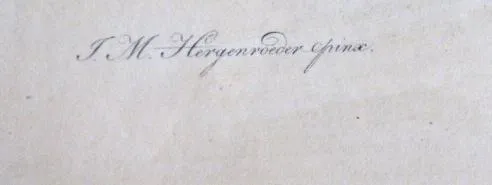 J. M. Hergenroeder pinx.